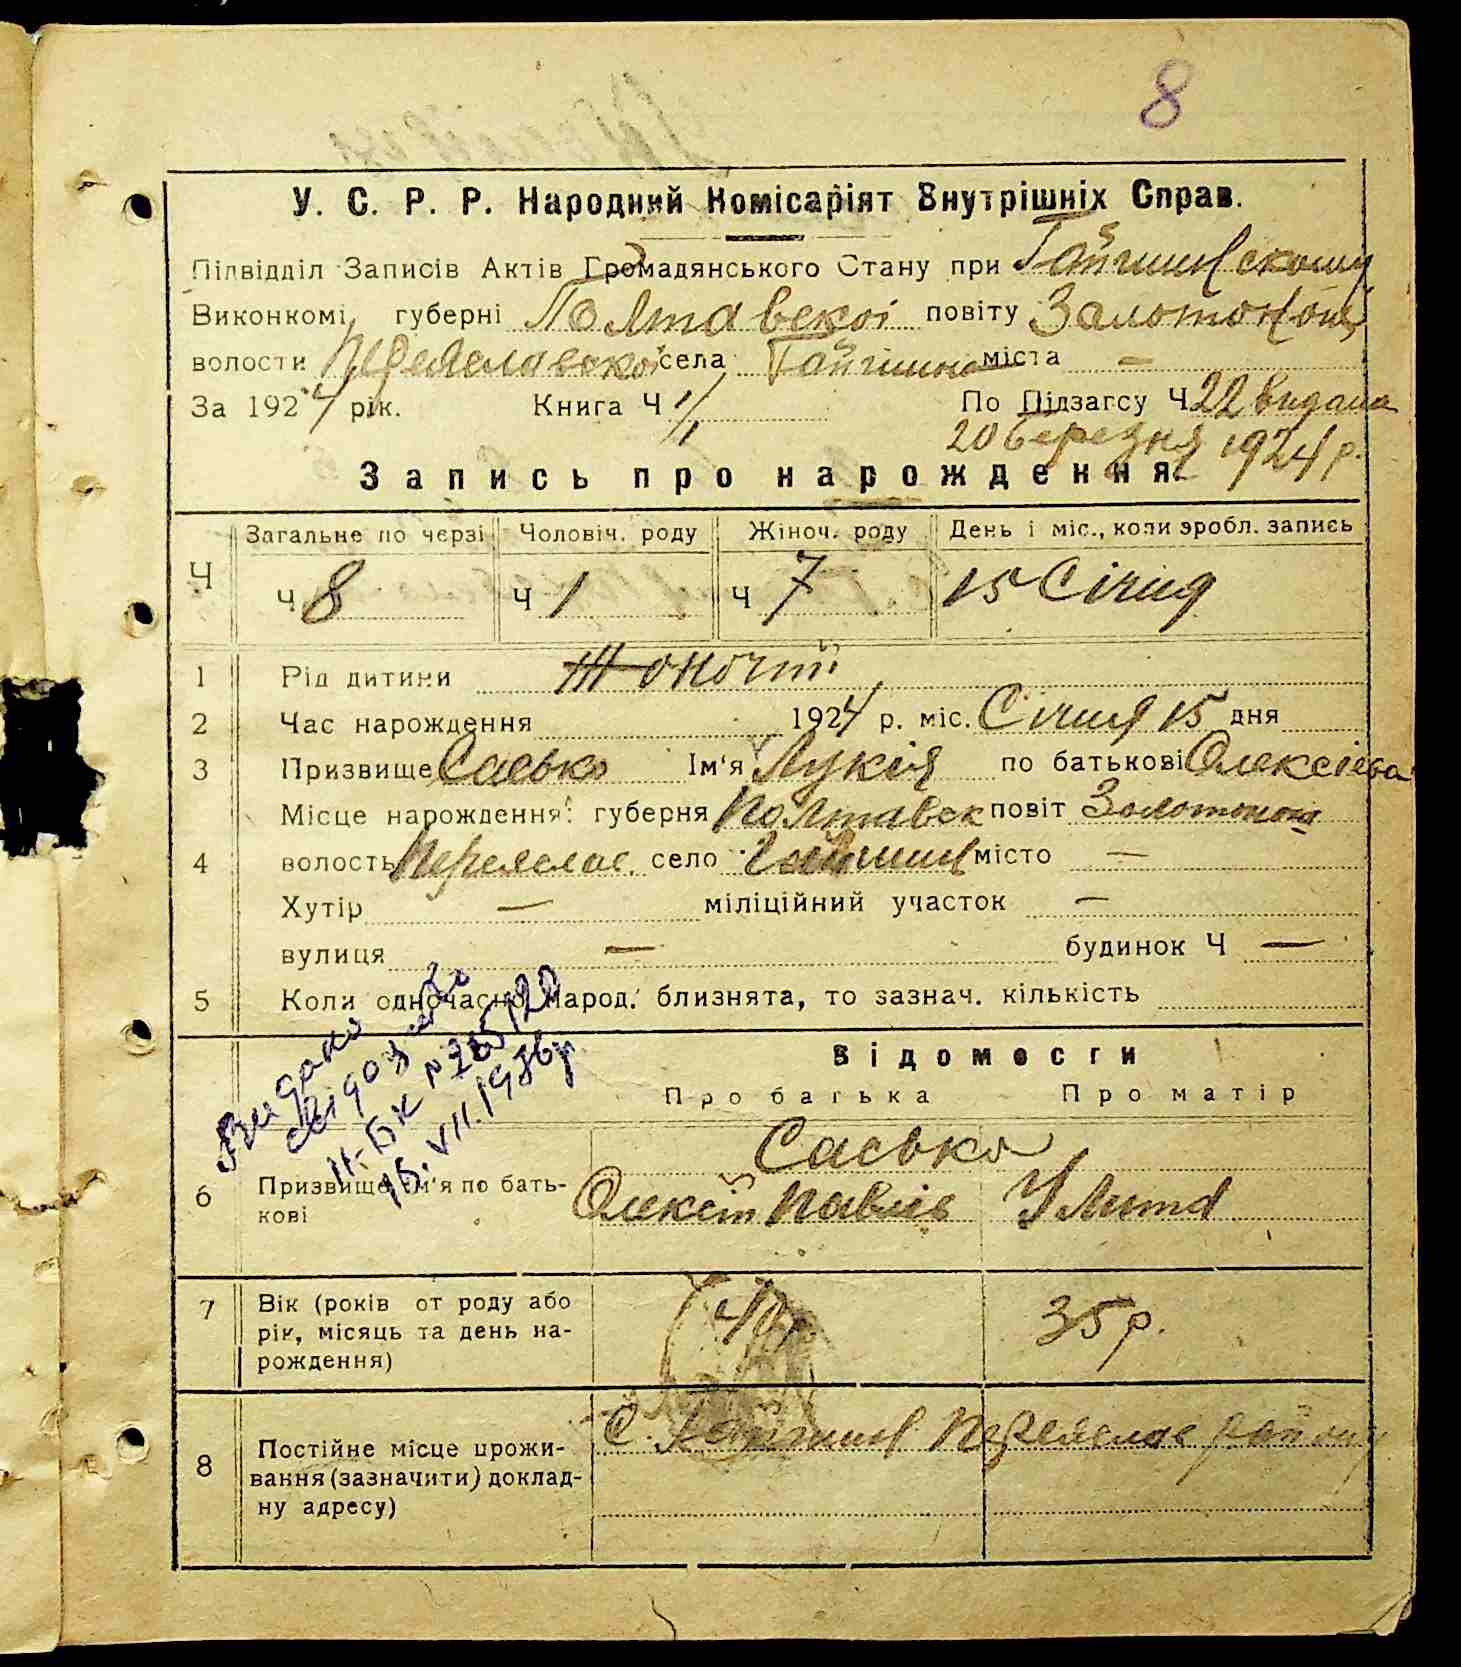 8
У. С. Р. Р. Народний Комісаріят Внутрішніх Справ.
Підвідділ Записів Актів Громадянського Стану при Гайшинскому
Виконкомі, губерні Полтавскоі повіту Золотонош
волости Переяславскоі села Гайшина міста —
За 1924 рік. Книга Ч 1/1 По Підзагсу Ч 22 видана
20 березня 1924 р.
Запись про нарождення.
Загальне по черзі Чоловіч. роду Жіноч. роду День і міс., коли зробл. запись
Ч Ч 8 Ч 1 Ч 7 15 Січня
1 Рід дитини Жоночій
2 Час нарождення 1924 р. міс. Січня 15 дня
3 Призвище Сасько Ім'я Лукія по батькові Олексіева
Місце нарождення: губерня Полтавск повіт Золотонош
4 волость Переяслав. село Гайшин місто —
Хутір — міліційний участок —
вулиця — будинок Ч —
5 Коли одночасно народ. близнята, то зазнач. кількість
Видано
свідоц
ІІ-БК №
15.VII.1936р
Відомости
Про батька Про матір
Сасько
6 Призвище ім'я по бать- Олексій Павлів Улита
кові
7 Вік (років от роду або 40 35 р.
рік, місяць та день на-
рождення)
С. Гайшин Переяслав району
8 Постійне місце прожи-
вання (зазначити) доклад-
ну адресу)